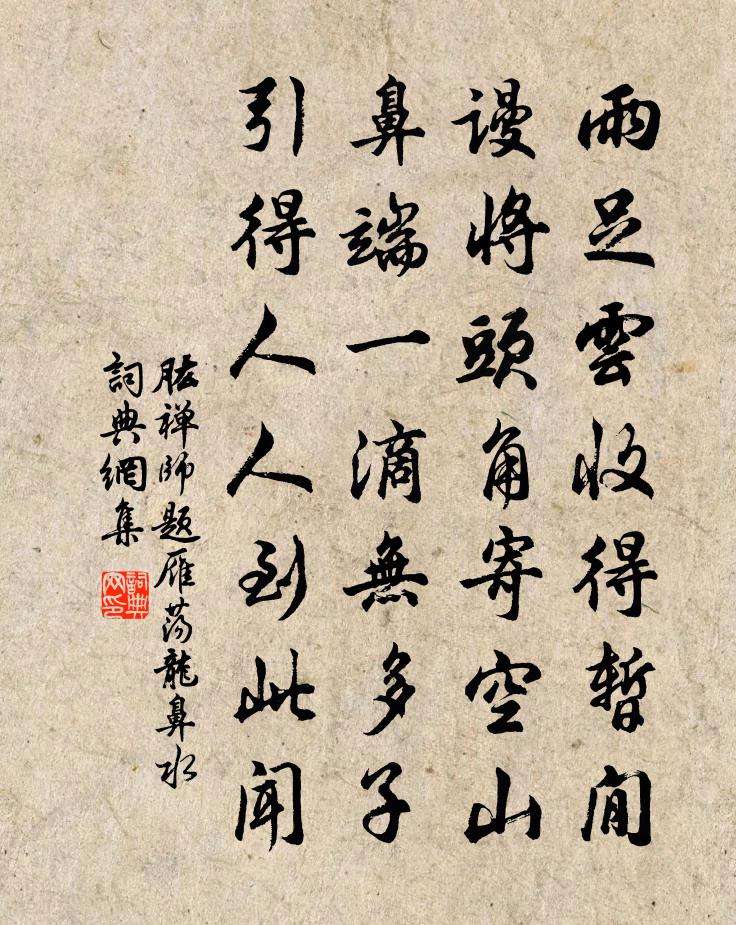 雨足雲收得暫閒
謾將頭角寄空山
鼻端一滴無多子
引得人人到此聞
肱禪師題雁蕩龍鼻水
詞典網集
詞典网印